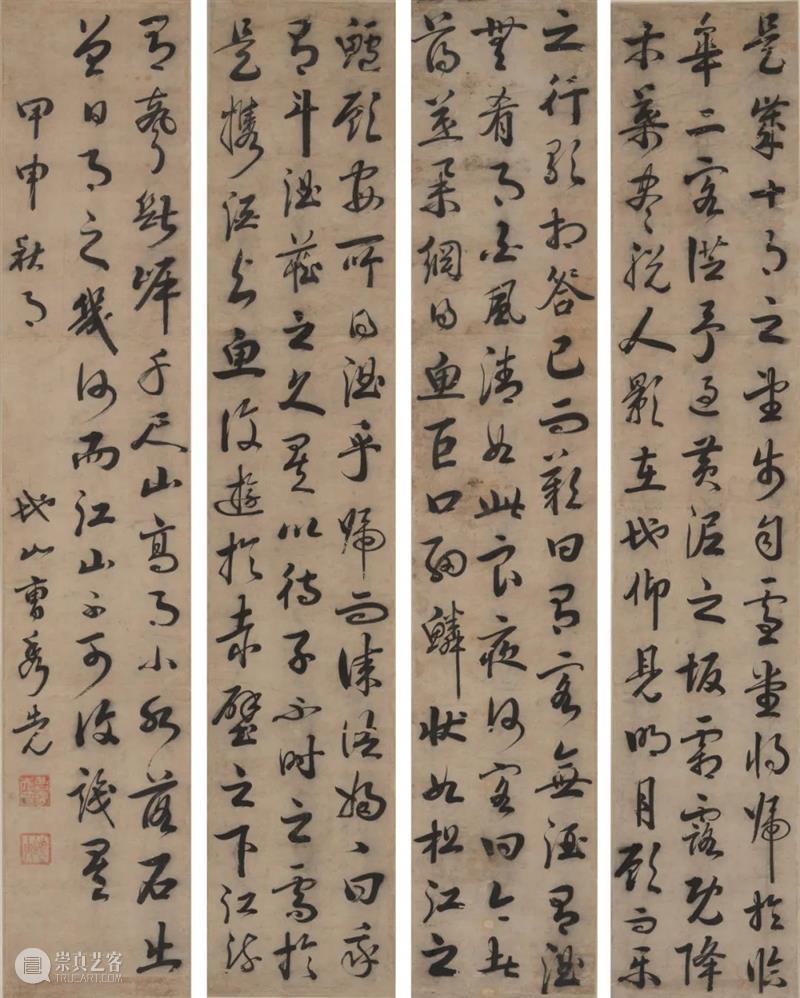 是歲十月之望步自雪堂將歸於臨
皋二客從予過黃泥之坂霜露既降
木葉盡脫人影在地仰見明月顧而樂
之行歌相答已而歎曰有客無酒有酒
無肴月白風清如此良夜何客曰今者
薄暮舉網得魚巨口細鱗狀如松江之
鱸顧安所得酒乎歸而謀諸婦〻曰我
有斗酒藏之久矣以待子不時之需於
是攜酒與魚復遊於赤壁之下江流
有聲斷岸千尺山高月小水落石出
曾日月之幾何而江山不可復識矣
甲申秋月
地山曹秀先
崇真艺客
TRUEART.COM